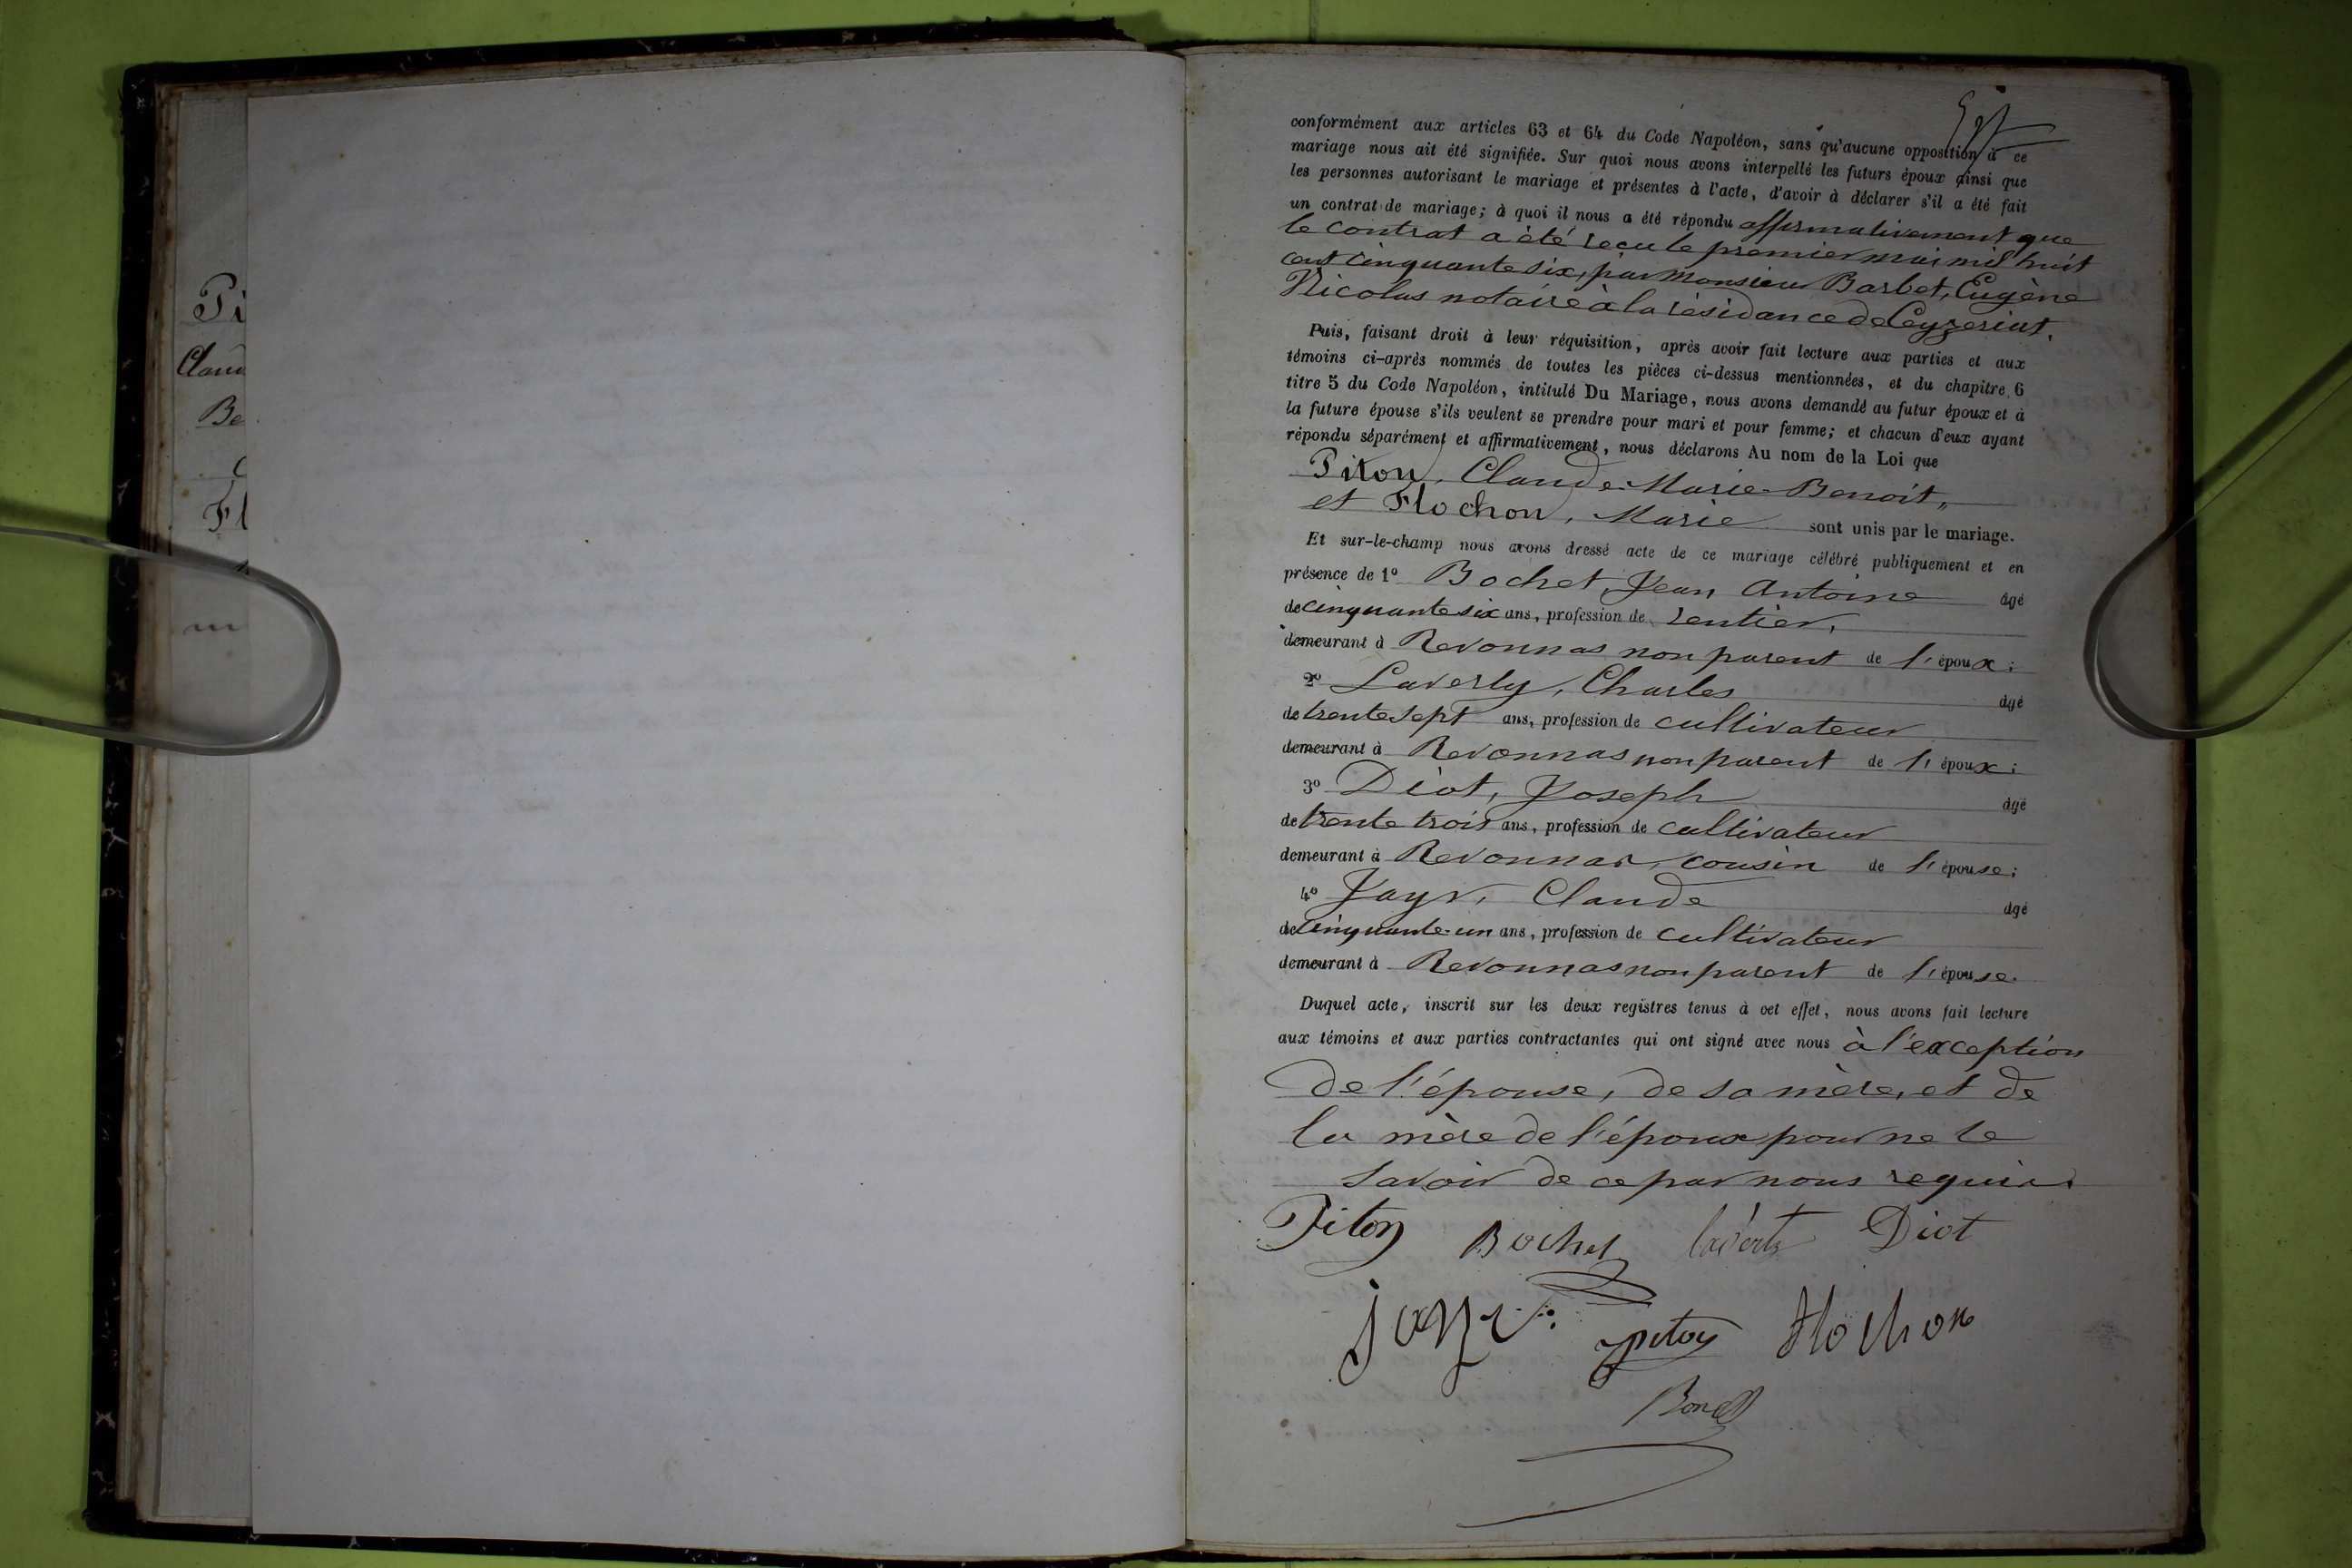 Pi
Clau
Be
C
Fl
m
conformément aux articles 63 et 64 du Code Napoléon, sans qu'aucune opposition à ce
mariage nous ait été signifiée. Sur quoi nous avons interpellé les futurs époux ainsi que
les personnes autorisant le mariage et présentes à l'acte, d'avoir à déclarer s'il a été fait
un contrat de mariage; à quoi il nous a été répondu affirmativement que
le contrat a été reçu le premier mai mil huit
cent cinquante six, par Monsieur Barbet, Eugène
Nicolas notaire à la résidance de Ceyzeriat.
Puis, faisant droit à leur réquisition, après avoir fait lecture aux parties et aux
témoins ci-après nommés de toutes les pièces ci-dessus mentionnées, et du chapitre 6
titre 5 du Code Napoléon, intitulé Du Mariage, nous avons demandé au futur époux et à
la future épouse s'ils veulent se prendre pour mari et pour femme; et chacun d'eux ayant
répondu séparément et affirmativement, nous déclarons Au nom de la Loi que
Piton, Claude-Marie-Benoit,,
et Flochon, Marie sont unis par le mariage.
Et sur-le-champ nous avons dressé acte de ce mariage célébré publiquement et en
présence de 1º Bochet, Jean Antoine âgé
de cinquante six ans, profession de rentier,
demeurant à Revonnas non parent de l'époux;
2º Laverly, Charles âgé
de trente sept ans, profession de cultivateur
demeurant à Revonnas non parent de l'époux;
3º Diot, Joseph âgé
de trente trois ans, profession de cultivateur
demeurant à Revonnas, cousin de l'épouse;
4º Jayr, Claude âgé
de cinquante-un ans, profession de cultivateur
demeurant à Revonnas non parent de l'épouse.
Duquel acte, inscrit sur les deux registres tenus à cet effet, nous avons fait lecture
aux témoins et aux parties contractantes qui ont signé avec nous à l'exception
de l'épouse, de sa mère, et de
la mère de l'époux pour ne le
savoir de ce par nous requis
Piton Bochet laverly Diot
jayr piton flochon